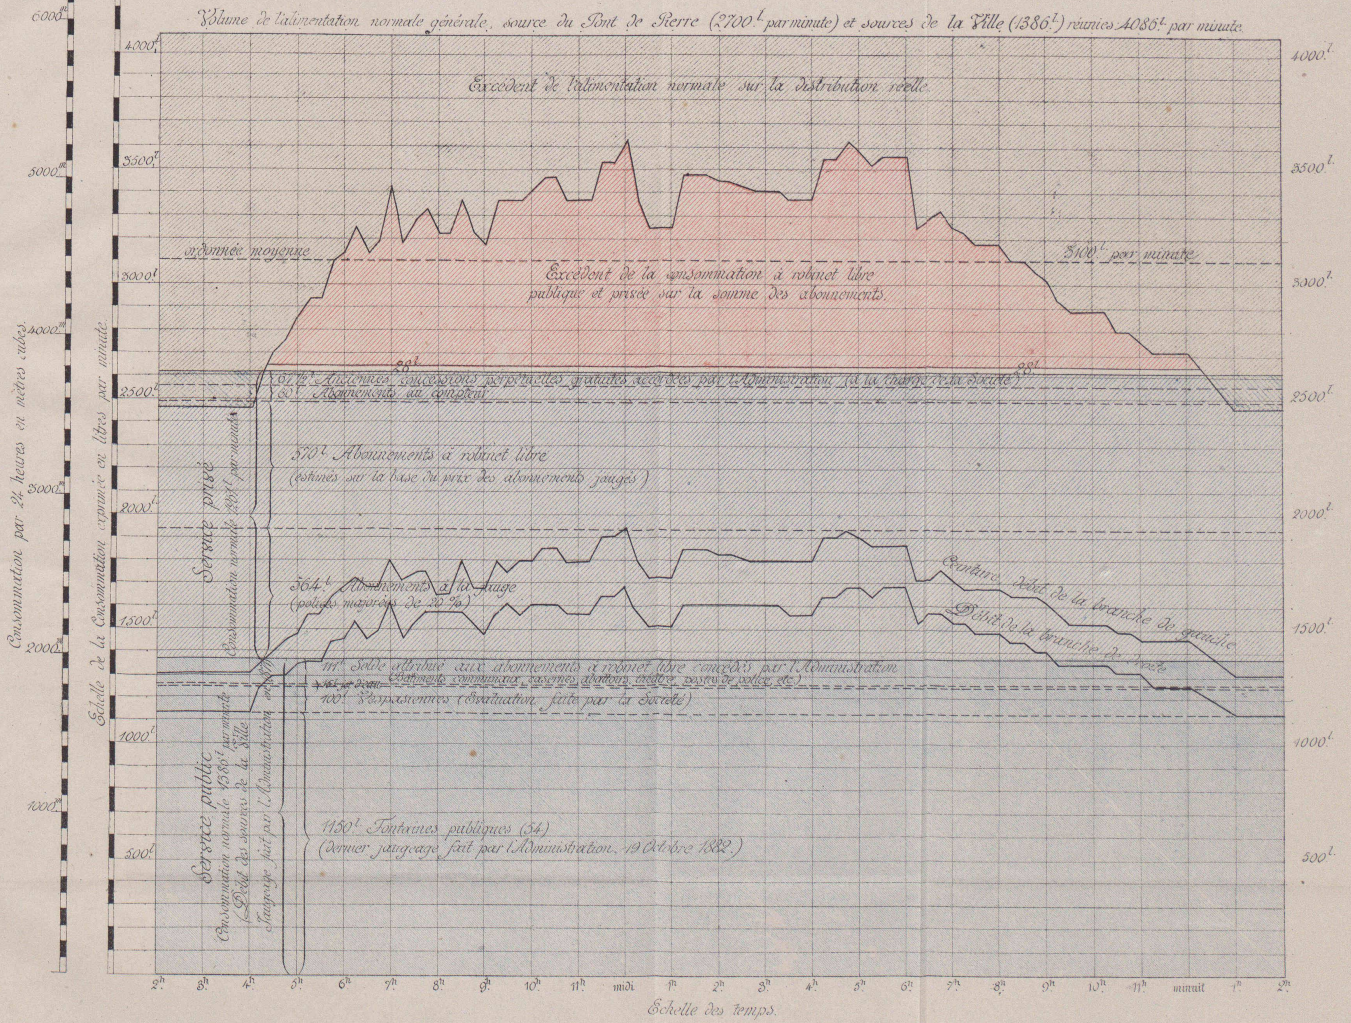 Volume de l'alimentation normale générale, source du Pont de Pierre (2700.l par minute) et sources de la Ville (1386.l) réunies 4086.l par minute.
Excédent de l'alimentation normale sur la distribution réelle.
ordonnée moyenne
3100.l par minute
Excédent de la consommation à robinet libre
publique et privée sur la somme des abonnements.
28.l
28.l
Anciennes concessions perpétuelles gratuites accordées par l'Administration (à la charge de la Société)
60.l Abonnements au compteur
570.l Abonnements à robinet libre
(estimés sur la base du prix des abonnements jaugés)
564.l Abonnements à la jauge
(polices majorées de 20 %)
Ceinture, débit de la branche de gauche
Débit de la branche de droite
111.l Solde attribué aux abonnements à robinet libre concédés par l'Administration
(Bâtiments communaux, casernes, abattoirs, théâtre, postes de police, etc.)
100.l Vespasiennes (Evaluation faite par la Société)
1150.l Fontaines publiques (54)
(dernier jaugeage fait par l'Administration, 19 Octobre 1882)
Service privé
Consommation normale par minute
Service public
Consommation normale 1386.l par minute
(Débit des sources de la Ville
Jaugeage fait par l'Administration
Consommation par 24 heures en mètres cubes.
6000.m
5000.m
4000.m
3000.m
2000.m
1000.m
Echelle de la Consommation exprimée en litres par minute
4000.l
3500.l
3000.l
2500.l
2000.l
1500.l
1000.l
500.l
4000.l
3500.l
3000.l
2500.l
2000.l
1500.l
1000.l
500.l
2.h 3.h 4.h 5.h 6.h 7.h 8.h 9.h 10.h 11.h midi 1.h 2.h 3.h 4.h 5.h 6.h 7.h 8.h 9.h 10.h 11.h minuit 1.h 2.h
Echelle des temps.